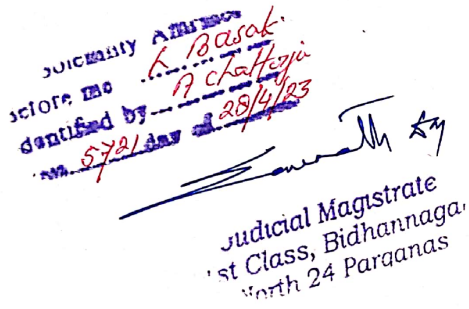 Solemnly Affirmed
before me L Basak
dentified by A Chatterjee
5721 day of 28/4/23
Judicial Magistrate
1st Class, Bidhannaga
North 24 Parganas